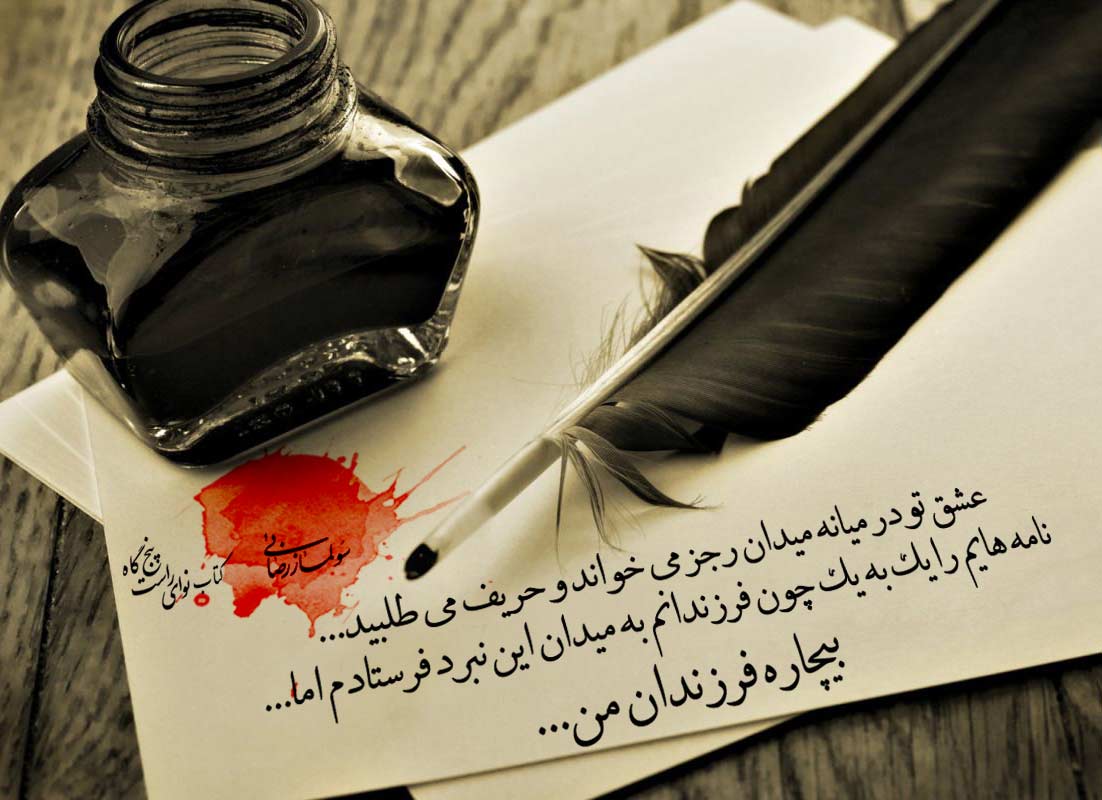 عشق تو در میانه میدان رجز می خواند و حریف می طلبید...
نامه هایم را یك به یك چون فرزندانم به میدان این نبرد فرستادم اما...
بیچاره فرزندان من...
سولماز رضایی
کتاب نوای راست پنج گاه